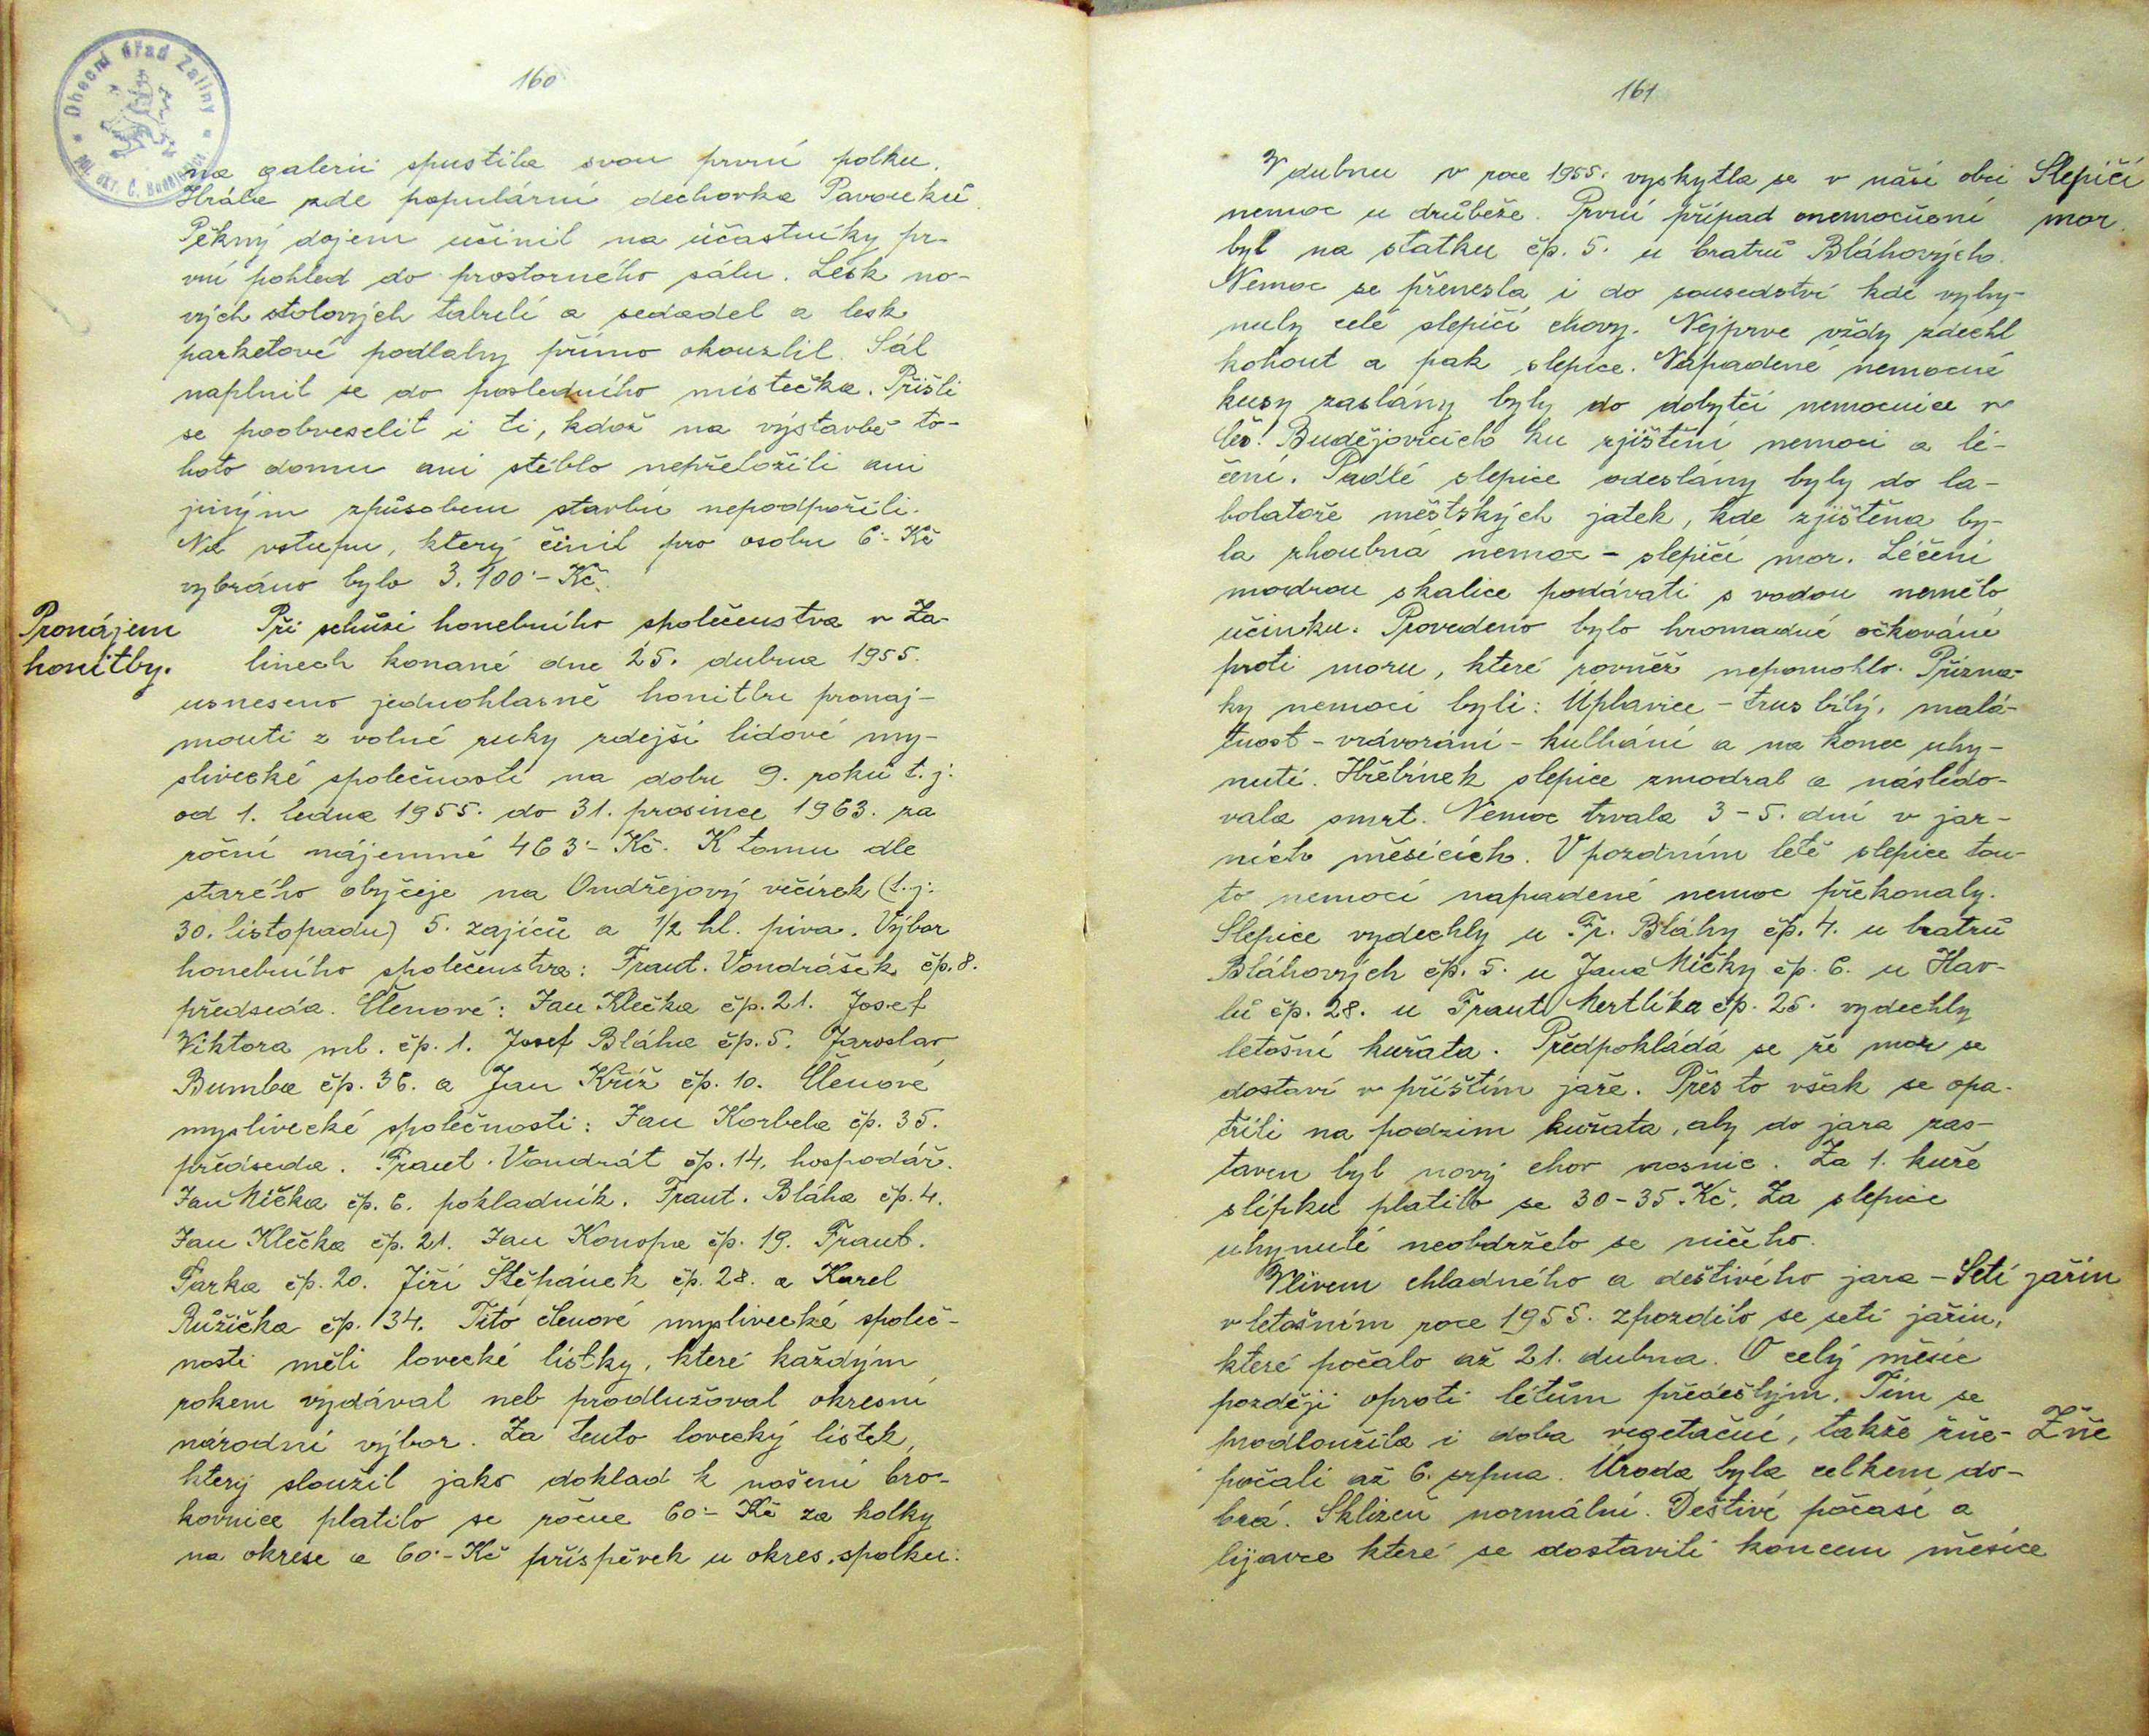 160
na galerii spustila svou první polku.
Hrála zde populární dechovka Pavouků.
Pěkný dojem učinil na účastníky pr-
vní pohled do prostorného sálu. Lesk no-
vých stolových tabulí a sedadel a lesk
parketové podlahy přímo okouzlil. Sál
naplnil se do posledního místečka. Přišli
se poobveselit i ti, kdož na výstavbě to-
hoto domu ani stéblo nepřeložili ani
jiným způsobem stavbu nepodpořili.
Na vstupu, který činil pro osobu 6·- Kč
vybráno bylo 3.100·- Kč.
Pronájem
honitby.
Při schůzi honebního společenstva v Za-
linech konané dne 25. dubna 1955.
usneseno jednohlasně honitbu pronaj-
mouti z volné ruky zdejší lidové my-
slivecké společnosti na dobu 9. roků t. j.
od 1. ledna 1955. do 31. prosince 1963. za
roční nájemné 463·- Kč. K tomu dle
starého obyčeje na Ondřejový večírek (t. j.
30. listopadu) 5. zajíců a 1/2 hl. piva. Výbor
honebního společenstva: Frant. Vondrášek čp. 8.
předseda. Členové: Jan Klečka čp. 21. Josef
Viktora ml. čp. 1. Josef Bláha čp. 5. Jaroslav
Bumba čp. 36. a Jan Kříž čp. 10. Členové
myslivecké společnosti: Jan Korbela čp. 35.
předseda. Frant. Vondrát čp. 14. hospodář.
Jan Mička čp. 6. pokladník. Frant. Bláha čp. 4.
Jan Klečka čp. 21. Jan Konopa čp. 19. Frant.
Parka čp. 20. Jiří Štěpánek čp. 28. a Karel
Růžička čp. 34. Tito členové myslivecké společ-
nosti měli lovecké lístky, které každým
rokem vydával neb prodlužoval okresní
národní výbor. Za tento lovecký lístek,
který sloužil jako doklad k nošení bro-
kovnice platilo se ročne 60·- Kč za kolky
na okrese a 60·- Kč příspěvek u okres. spolku.
161
V dubnu v roce 1955. vyskytla se v náší obci
Slepičí
mor.
nemoc u drůbeže. První případ onemocňení
byl na statku čp. 5. u bratrů Bláhových.
Nemoc se přenesla i do sousedství kde vyhy-
nuly celé slepičí chovy. Nejprve vždy zdechl
kohout a pak slepice. Napadené nemocné
kusy zaslány byly do dobytčí nemocnice v
Čes. Budějovicích ku zjištění nemoci a lé-
čení. Padlé slepice odeslány byly do la-
bolatoře městských jatek, kde zjištěna by-
la zhoubná nemoc - slepičí mor. Léčení
modrou skalice podávati s vodou nemělo
učinku. Provedeno bylo hromadné očkováné
proti moru, které rovněž nepomohlo. Přízna-
ky nemoci byli: Úplavice - trus bílý, malá-
tnost - vrávorání - kulhání a na konec uhy-
nutí. Hřebínek slepice zmodral a následo-
vala smrt. Nemoc trvala 3 - 5. dní v jar-
ních měsících. V pozdním létě slepice tou-
to nemocí napadené nemoc překonaly.
Slepice vydechly u Fr. Bláhy čp. 4. u bratrů
Bláhových čp. 5. u Jana Mičky čp. 6. u Hav-
lů čp. 28. u Frant. Mertlíka čp. 25. vydechly
letošní kuřata. Předpokládá se že mor se
dostaví v příštím jaře. Přes to však se opa-
třili na podzim kuřata, aby do jara zas-
taven byl nový chov nosnic. Za 1. kuře
slípku platilo se 30 - 35. Kč. Za slepice
uhynulé neobdrželo se ničeho.
Vlivem chladného a deštivého jara -
Setí jařin
v letošním roce 1955. zpozdilo se setí jařin,
které počalo až 21. dubna. O celý měsíc
později oproti létům předešlým. Tím se
prodloužila i doba vegetační, takže žně-
Žně
počali až 6. srpna. Úroda byla celkem do-
brá. Sklizeň normální. Deštivé počasí a
lijavce které se dostavili koncem měsíce